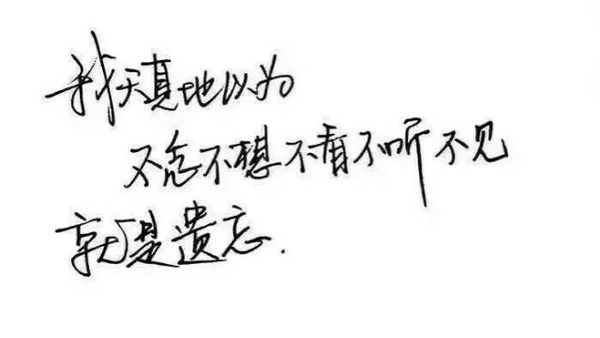 我天真地以为
不念不想不看不听不见
就是遗忘.